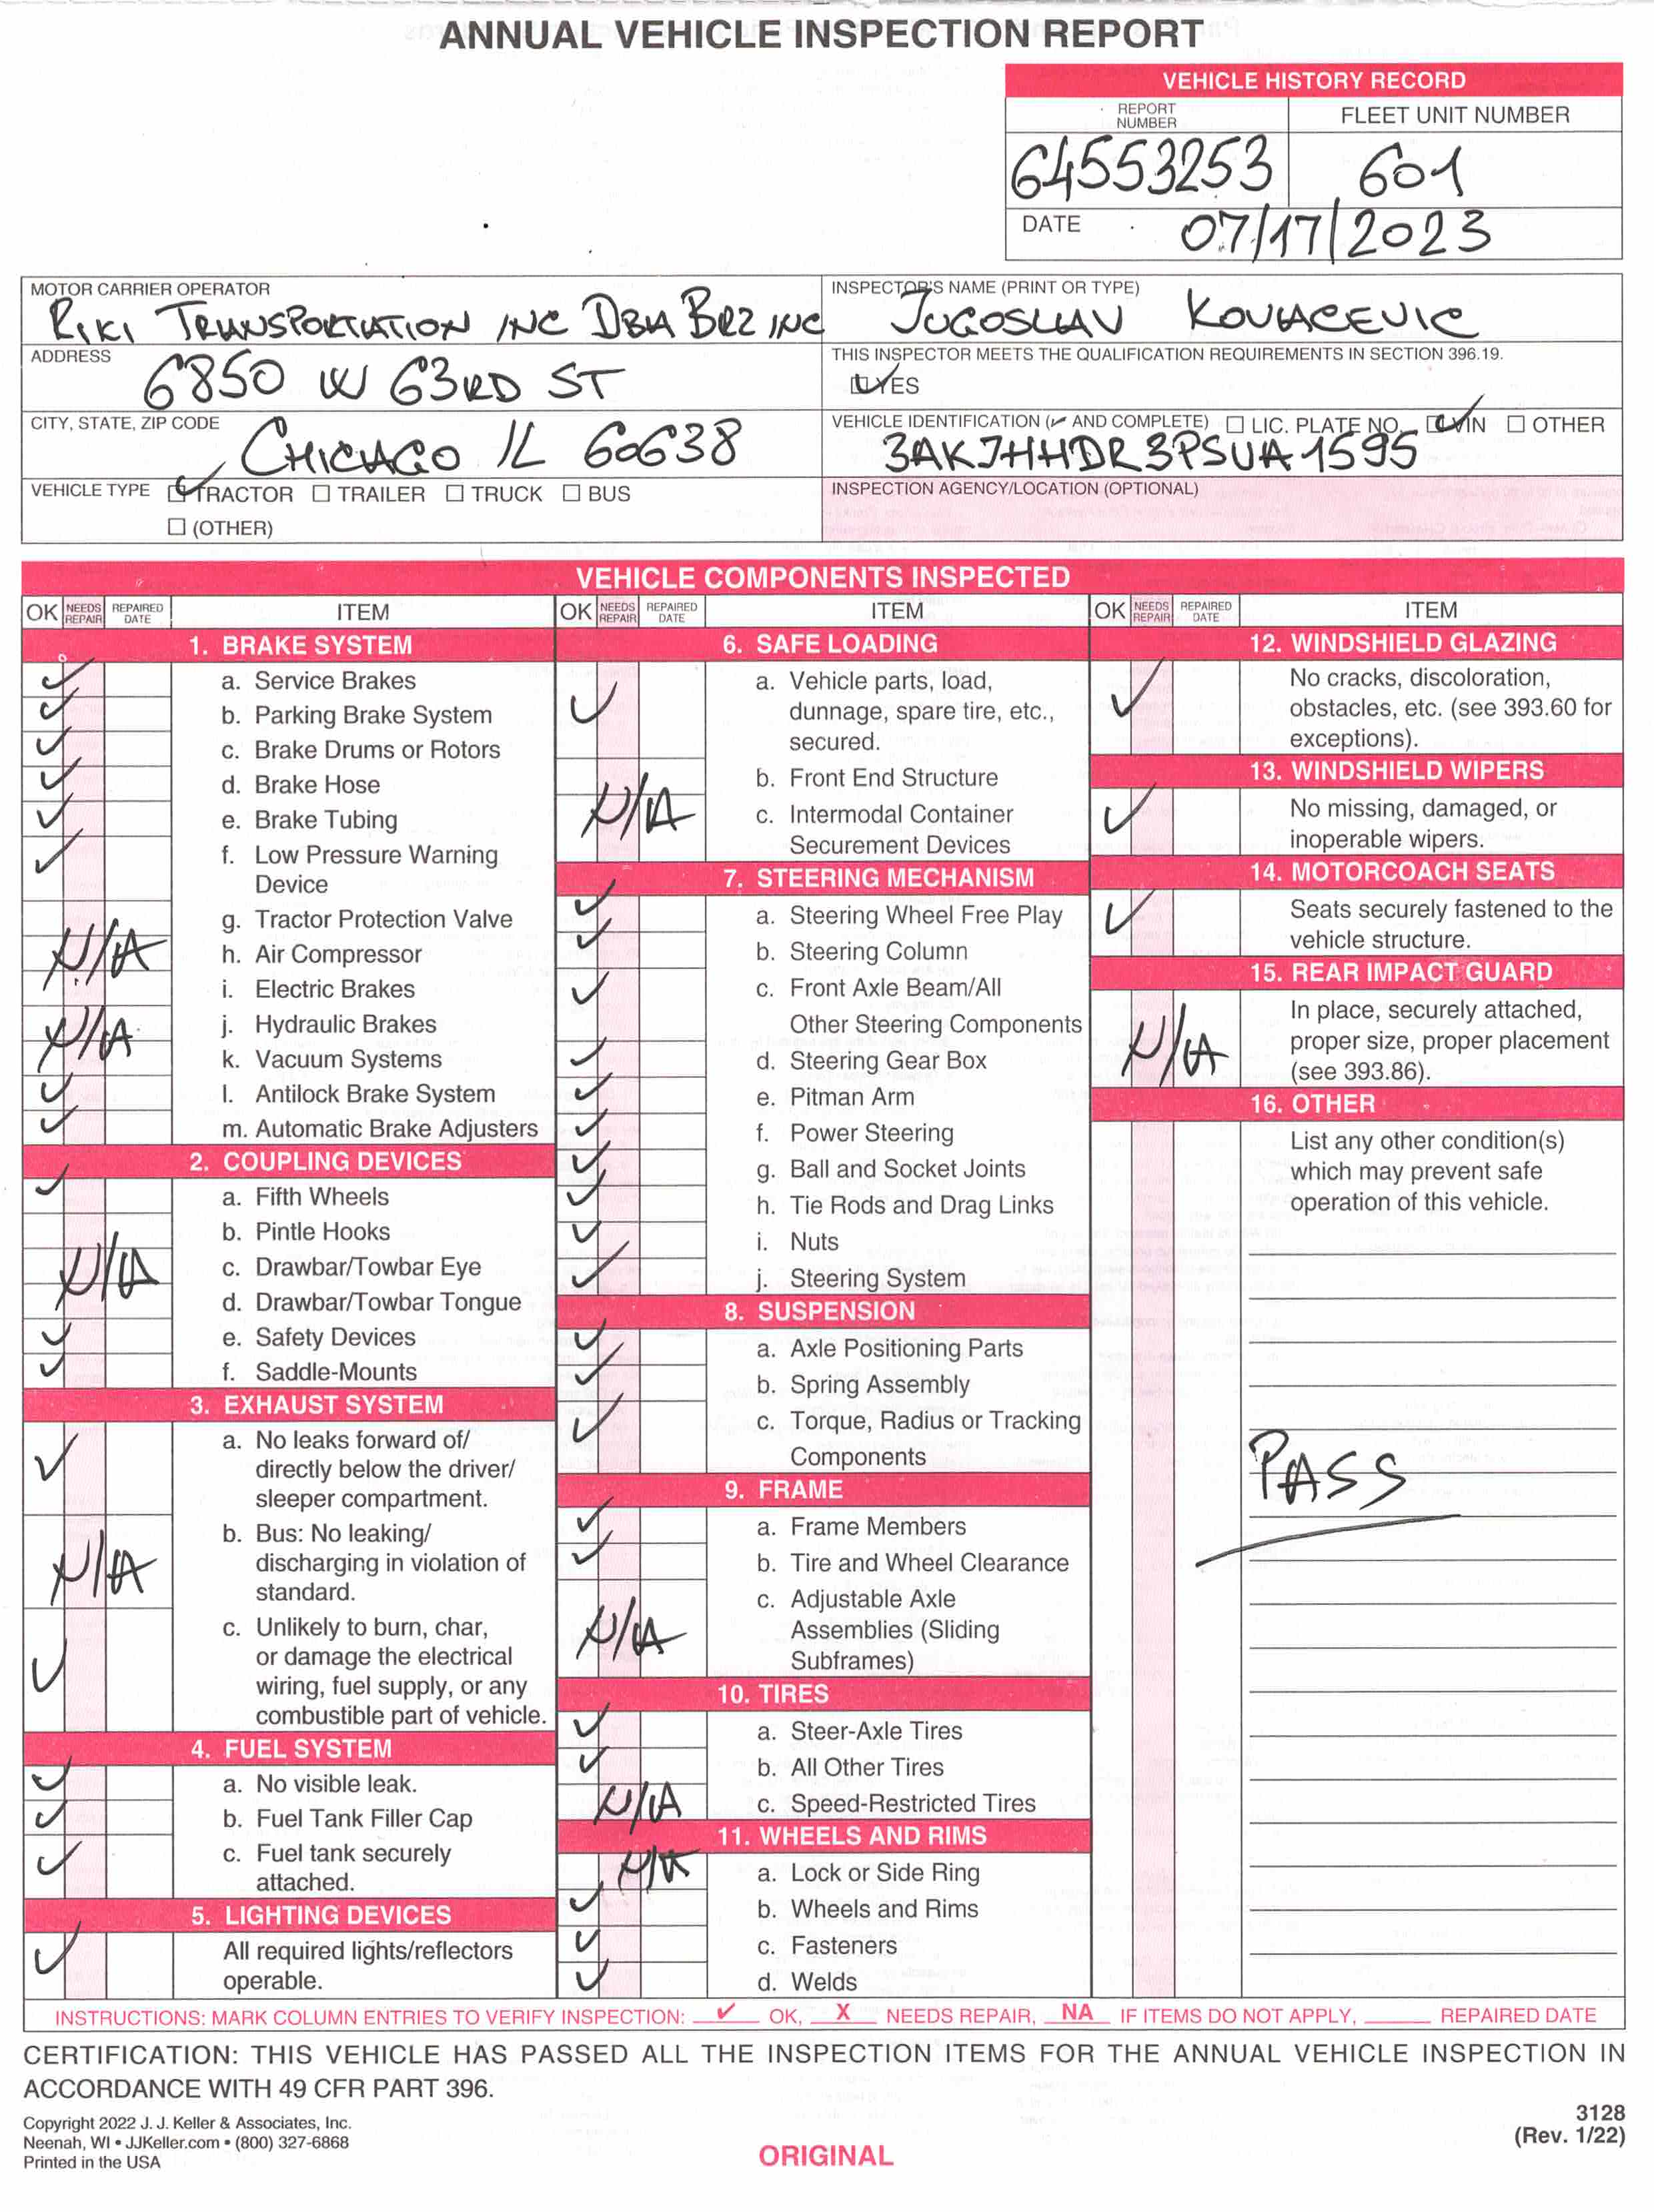 ANNUAL VEHICLE INSPECTION REPORT
VEHICLE HISTORY RECORD
REPORT NUMBER
FLEET UNIT NUMBER
64553253
601
DATE 07/17/2023
MOTOR CARRIER OPERATOR
RIKI TRANSPORTATION INC DBA BRZ INC
INSPECTOR'S NAME (PRINT OR TYPE)
JUGOSLAV KOVACEVIC
ADDRESS
6850 W 63RD ST
THIS INSPECTOR MEETS THE QUALIFICATION REQUIREMENTS IN SECTION 396.19.
✓ YES
CITY, STATE, ZIP CODE
CHICAGO IL 60638
VEHICLE IDENTIFICATION (✓ AND COMPLETE) ☐ LIC. PLATE NO. ✓ VIN ☐ OTHER
3AKJHHDR3PSUA1595
VEHICLE TYPE ✓ TRACTOR ☐ TRAILER ☐ TRUCK ☐ BUS
☐ (OTHER)
INSPECTION AGENCY/LOCATION (OPTIONAL)
VEHICLE COMPONENTS INSPECTED
OK NEEDS REPAIR REPAIRED DATE ITEM
1. BRAKE SYSTEM
✓ a. Service Brakes
✓ b. Parking Brake System
✓ c. Brake Drums or Rotors
✓ d. Brake Hose
✓ e. Brake Tubing
✓ f. Low Pressure Warning
Device
g. Tractor Protection Valve
N/A h. Air Compressor
i. Electric Brakes
N/A j. Hydraulic Brakes
k. Vacuum Systems
✓ l. Antilock Brake System
✓ m. Automatic Brake Adjusters
2. COUPLING DEVICES
✓ a. Fifth Wheels
b. Pintle Hooks
N/A c. Drawbar/Towbar Eye
d. Drawbar/Towbar Tongue
✓ e. Safety Devices
✓ f. Saddle-Mounts
3. EXHAUST SYSTEM
✓ a. No leaks forward of/
directly below the driver/
sleeper compartment.
N/A b. Bus: No leaking/
discharging in violation of
standard.
✓ c. Unlikely to burn, char,
or damage the electrical
wiring, fuel supply, or any
combustible part of vehicle.
4. FUEL SYSTEM
✓ a. No visible leak.
✓ b. Fuel Tank Filler Cap
✓ c. Fuel tank securely
attached.
5. LIGHTING DEVICES
✓ All required lights/reflectors
operable.
OK NEEDS REPAIR REPAIRED DATE ITEM
6. SAFE LOADING
✓ a. Vehicle parts, load,
dunnage, spare tire, etc.,
secured.
b. Front End Structure
N/A c. Intermodal Container
Securement Devices
7. STEERING MECHANISM
✓ a. Steering Wheel Free Play
✓ b. Steering Column
✓ c. Front Axle Beam/All
Other Steering Components
✓ d. Steering Gear Box
✓ e. Pitman Arm
✓ f. Power Steering
✓ g. Ball and Socket Joints
✓ h. Tie Rods and Drag Links
✓ i. Nuts
✓ j. Steering System
8. SUSPENSION
✓ a. Axle Positioning Parts
✓ b. Spring Assembly
✓ c. Torque, Radius or Tracking
Components
9. FRAME
✓ a. Frame Members
✓ b. Tire and Wheel Clearance
N/A c. Adjustable Axle
Assemblies (Sliding
Subframes)
10. TIRES
✓ a. Steer-Axle Tires
✓ b. All Other Tires
N/A c. Speed-Restricted Tires
11. WHEELS AND RIMS
N/A a. Lock or Side Ring
✓ b. Wheels and Rims
✓ c. Fasteners
✓ d. Welds
OK NEEDS REPAIR REPAIRED DATE ITEM
12. WINDSHIELD GLAZING
✓ No cracks, discoloration,
obstacles, etc. (see 393.60 for
exceptions).
13. WINDSHIELD WIPERS
✓ No missing, damaged, or
inoperable wipers.
14. MOTORCOACH SEATS
✓ Seats securely fastened to the
vehicle structure.
15. REAR IMPACT GUARD
N/A In place, securely attached,
proper size, proper placement
(see 393.86).
16. OTHER
List any other condition(s)
which may prevent safe
operation of this vehicle.
PASS
INSTRUCTIONS: MARK COLUMN ENTRIES TO VERIFY INSPECTION: ✓ OK, X NEEDS REPAIR, NA IF ITEMS DO NOT APPLY, ____ REPAIRED DATE
CERTIFICATION: THIS VEHICLE HAS PASSED ALL THE INSPECTION ITEMS FOR THE ANNUAL VEHICLE INSPECTION IN
ACCORDANCE WITH 49 CFR PART 396.
Copyright 2022 J. J. Keller & Associates, Inc.
Neenah, WI • JJKeller.com • (800) 327-6868
Printed in the USA
ORIGINAL
3128
(Rev. 1/22)